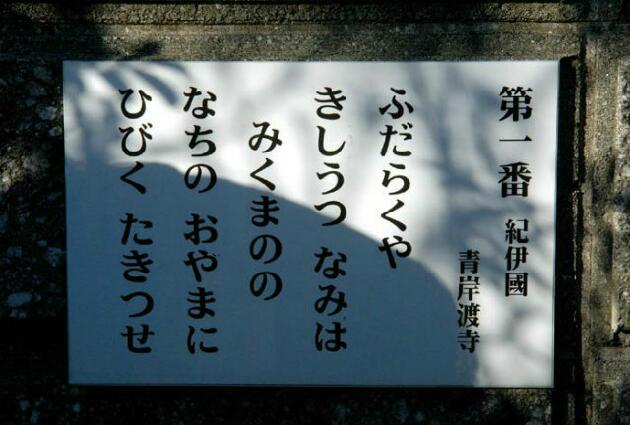 第一番 紀伊國
青岸渡寺
ふだらくや
きしうつ なみは
みくまのの
なちの おやまに
ひびく たきつせ